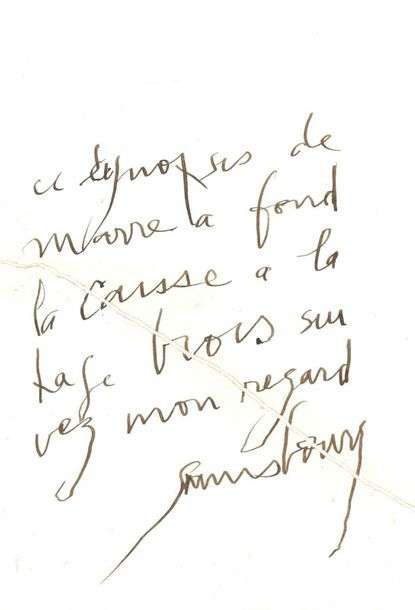 ce synopsis de
marre à fond
la caisse à la
page trois sui
vez mon regard
Gainsbourg